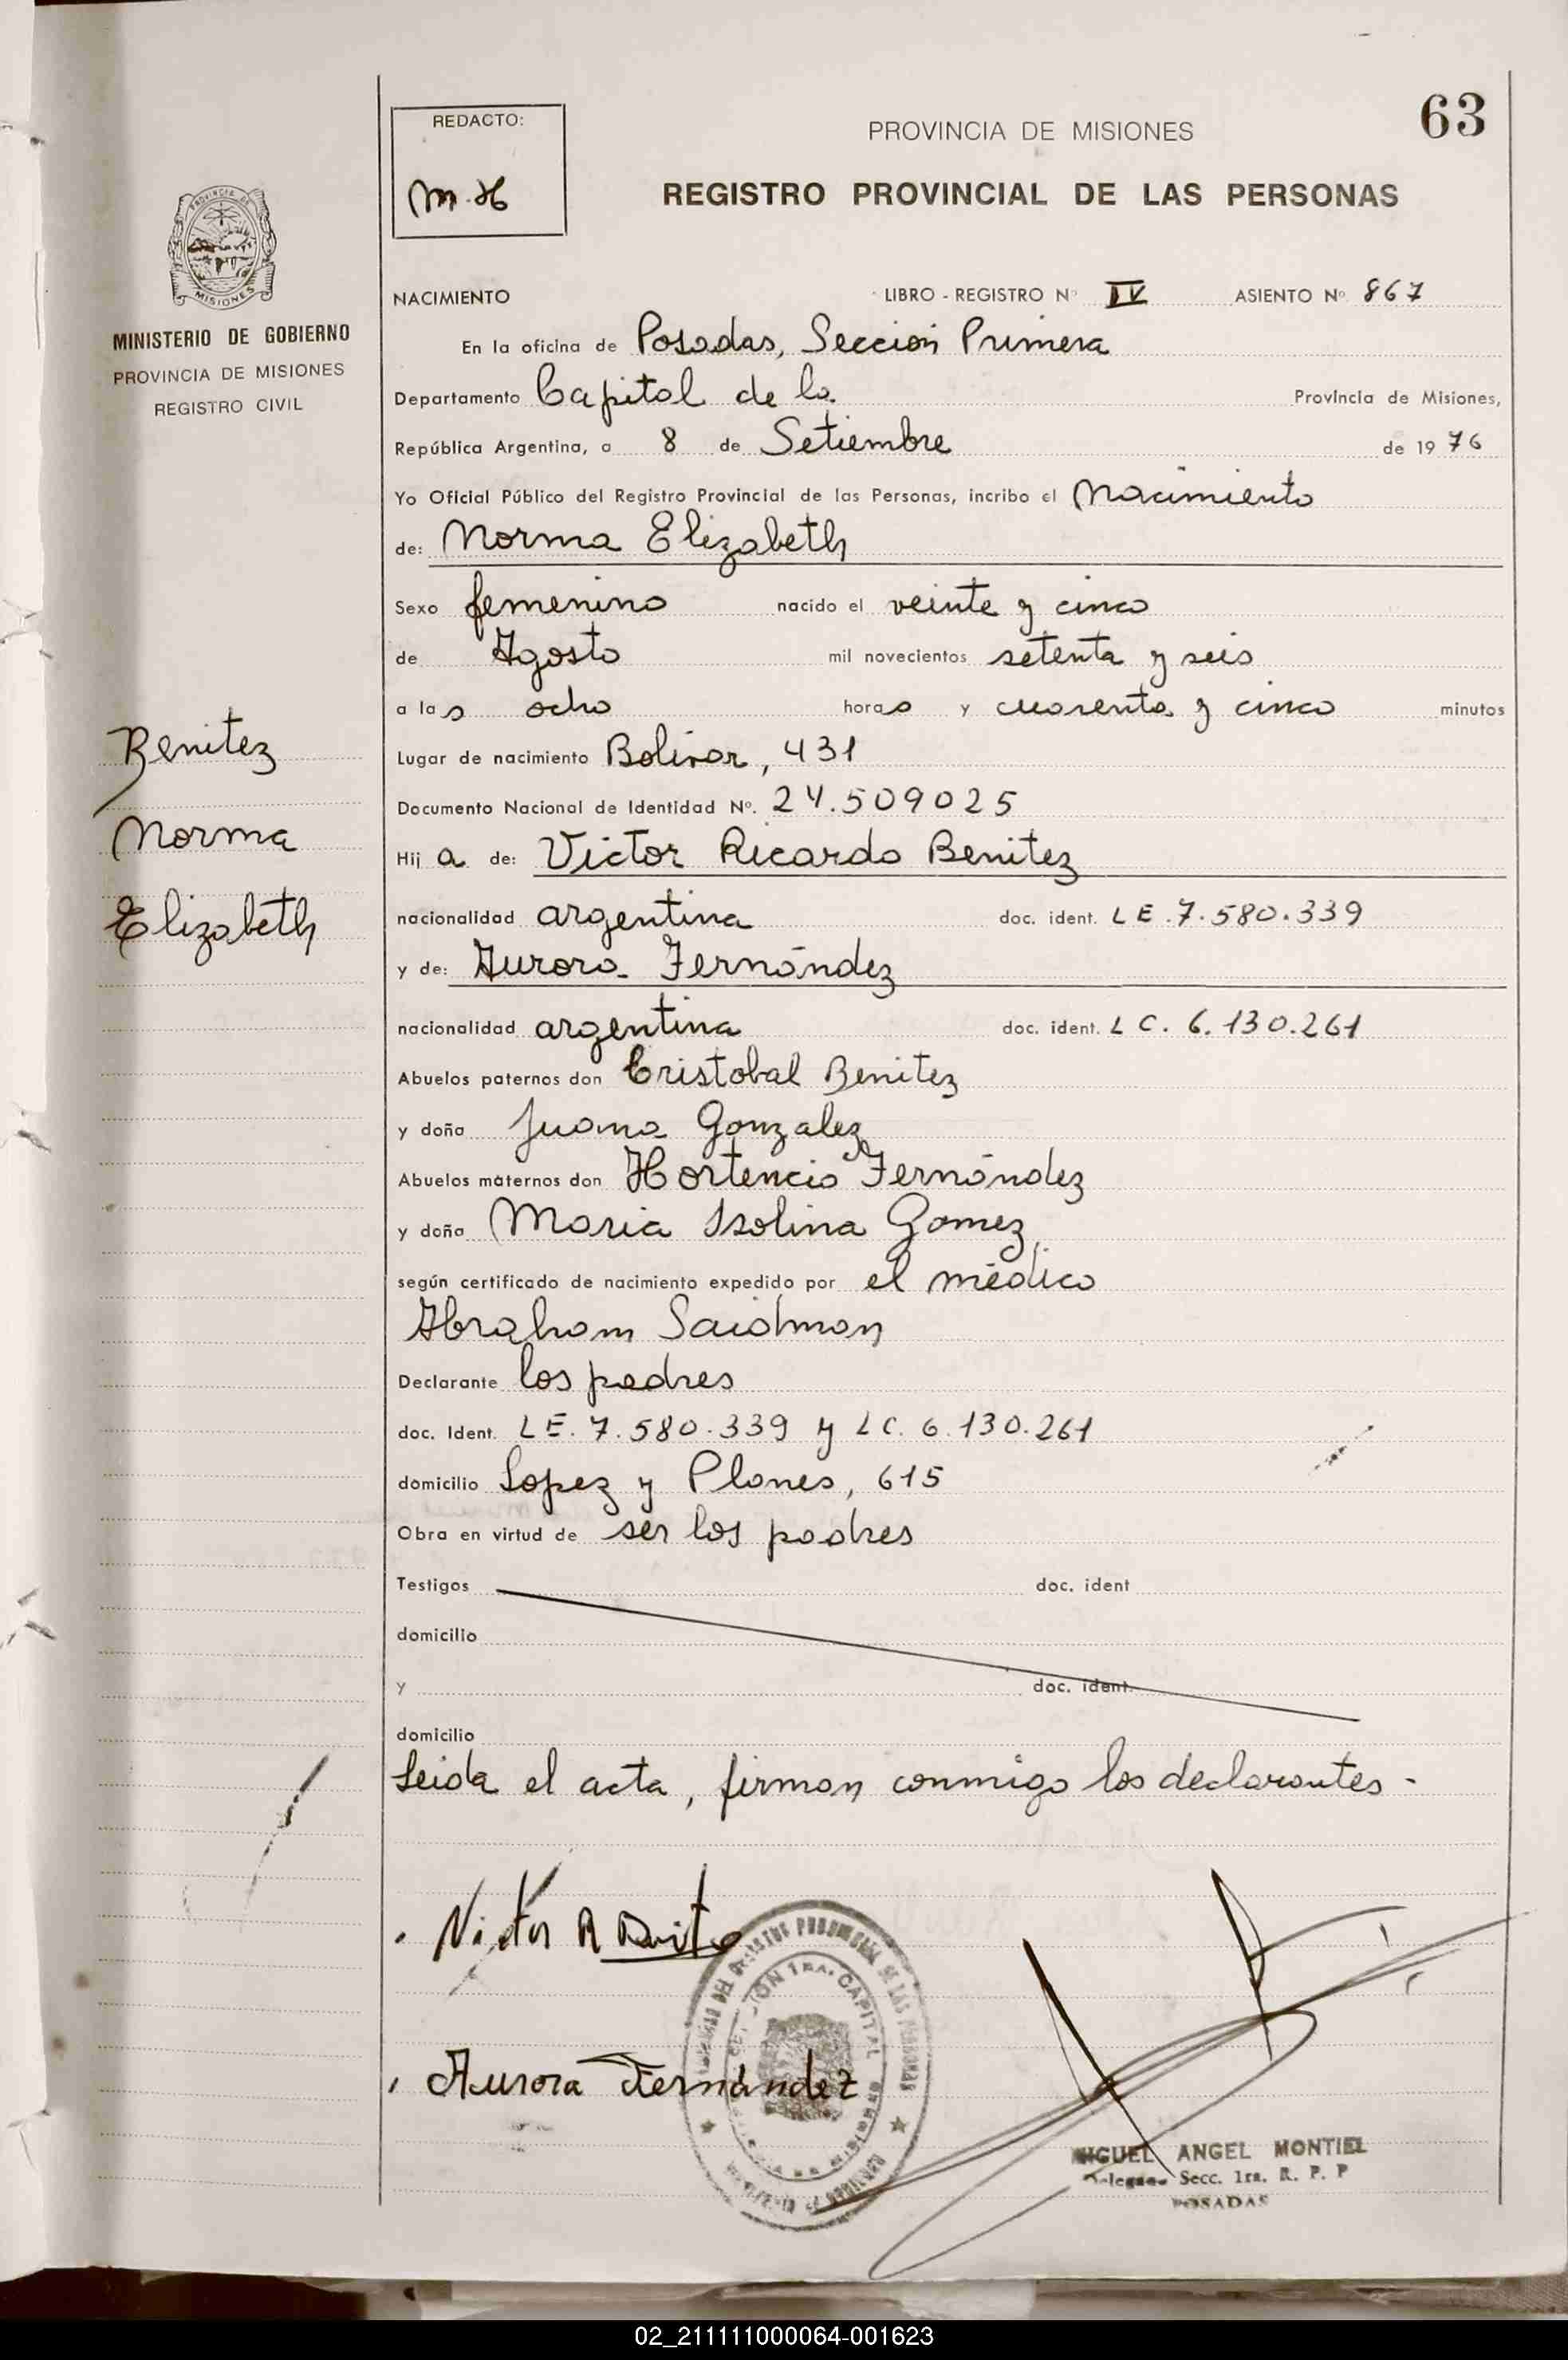 63
REDACTO:
M.H
PROVINCIA DE MISIONES
REGISTRO PROVINCIAL DE LAS PERSONAS
MISIONES
MINISTERIO DE GOBIERNO
PROVINCIA DE MISIONES
REGISTRO CIVIL
Benitez
Norma
Elizabeth
NACIMIENTO LIBRO - REGISTRO Nº IV ASIENTO Nº 867
En la oficina de Posadas, Sección Primera
Departamento Capital de la Provincia de Misiones,
República Argentina, a 8 de Setiembre de 1976
Yo Oficial Público del Registro Provincial de las Personas, incribo el Nacimiento
de: Norma Elizabeth
Sexo femenino nacido el veinte y cinco
de Agosto mil novecientos setenta y seis
a las ocho horas y cuarenta y cinco minutos
Lugar de nacimiento Bolivar, 431
Documento Nacional de Identidad Nº. 24.509025
Hija de: Victor Ricardo Benitez
nacionalidad argentina doc. ident. LE.7.580.339
y de: Aurora Fernández
nacionalidad argentina doc. ident. LC. 6.130.261
Abuelos paternos don Cristobal Benitez
y doña Juana Gonzalez
Abuelos maternos don Hortencio Fernández
y doña Maria Isolina Gomez,
según certificado de nacimiento expedido por el médico
Abraham Saidman
Declarante los padres
doc. Ident. LE. 7.580.339 y LC. 6.130.261
domicilio Lopez y Planes, 615
Obra en virtud de ser los padres
Testigos doc. ident
domicilio
y doc. ident.
domicilio
Leida el acta, firman conmigo los declarantes -
Victor R Benitez
Aurora Fernández
SECCION 1ra. CAPITAL
MIGUEL ANGEL MONTIEL
Delegado Secc. 1ra. R. P. P
POSADAS
02_211111000064-001623